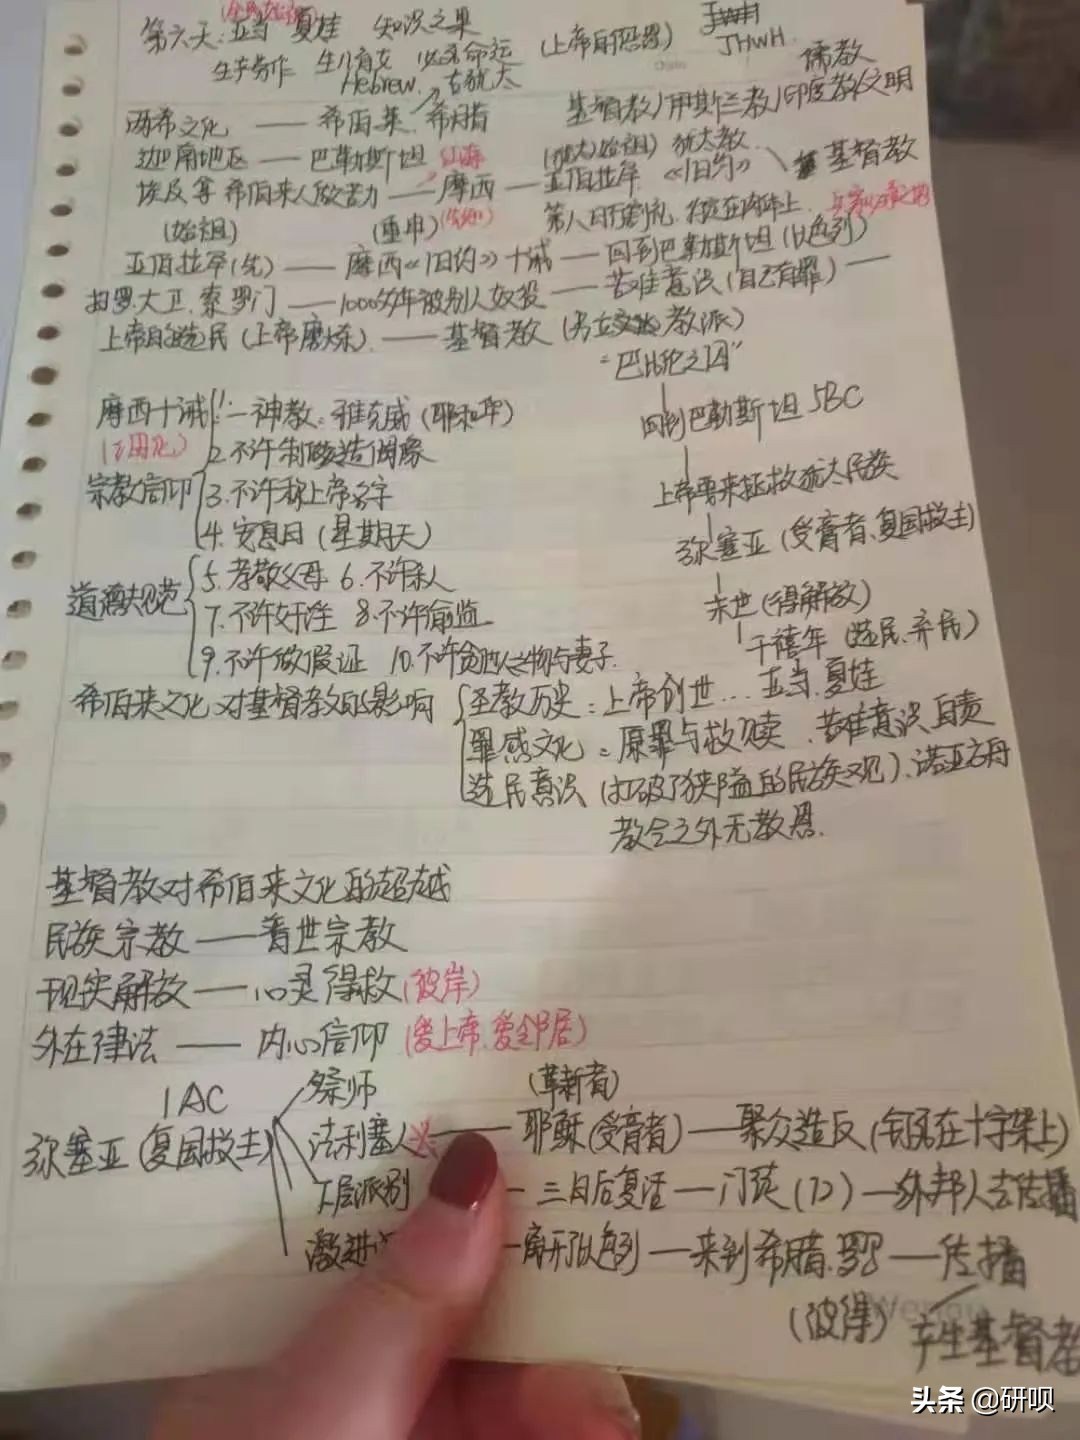 第六天：亚当 夏娃 知识之果
(上帝的惩罚)
JHWH.
生产劳作 生儿育女 必死命运
儒教
Hebrew. 古犹太
基督教/伊斯兰教/印度教文明
两希文化 —— 希伯来、希腊
边角地区 —— 巴勒斯坦
(犹太)始祖) 犹太教、
埃及等 希伯来人做苦力 —— 摩西 —— 亚伯拉罕 《旧约》 基督教
(始祖) (重申) (先知)
亚伯拉罕(先) —— 摩西《旧约》十诫 —— 回到巴勒斯坦 (以色列)
扫罗.大卫.索罗门 —— 1000多年被别人奴役 —— 苦难意识 (自己有罪) ——
上帝的选民 (上帝磨炼). —— 基督教 (另立 教派)
"巴比伦之囚"
摩西十诫 1.一神教：雅克威 (耶和华)
回到巴勒斯坦 5BC
2.不许制造偶像
宗教信仰 3.不许称上帝名字
上帝要来拯救犹太民族
4.安息日 (星期天)
弥塞亚 (受膏者、复国救主)
道德规范 5.孝敬父母 6.不许杀人
末世 (得解放)
7.不许奸淫 8.不许偷盗
千禧年 (选民.弃民)
9.不许做假证 10.不许贪恋人之物与妻子.
希伯来文化对基督教的影响 圣教历史：上帝创世... 亚当.夏娃
罪感文化：原罪与救赎. 苦难意识.自责
选民意识 (打破了狭隘的民族观). 诺亚方舟
教会之外无救恩.
基督教对希伯来文化的超越
民族宗教 —— 普世宗教
现实解放 —— 心灵得救 (彼岸)
外在律法 —— 内心信仰 (爱上帝.爱邻居)
1AC 祭师 (革新者)
弥塞亚 (复国救主) 法利塞人 —— 耶稣 (受膏者) —— 聚众造反 (钉死在十字架上)
下层派别 — 三日后复活 — 门徒 (12) — 外邦人去传播
激进 — 离开以色列 — 来到希腊.罗马 — 传播
(彼得) 产生基督教
头条 @研呗